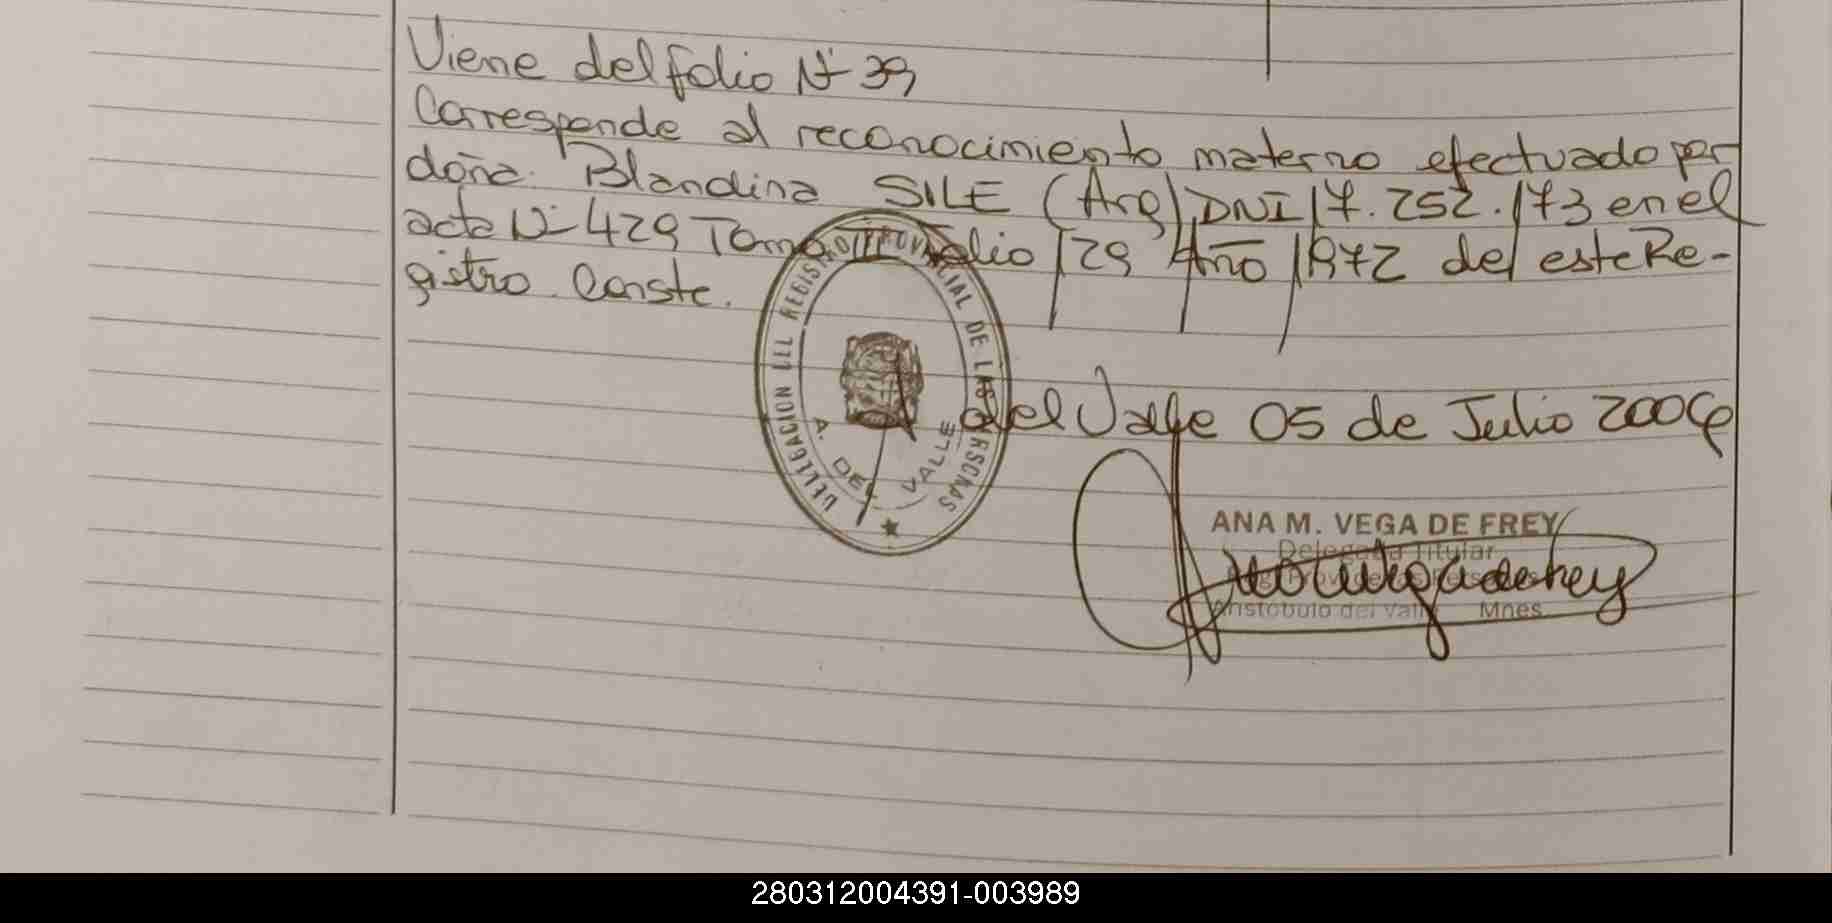 Viene del folio Nº 39
Corresponde al reconocimiento materno efectuado por
doña: Blandina SILE (Arg) DNI 17.252.173 en el
acta Nº 429 Tomo III Folio 129 Año 1972 del este Re-
gistro. Conste.
DELEGACION DEL REGISTRO PROVINCIAL DE LAS PERSONAS
A. DEL VALLE
del Valle 05 de Julio 2006
ANA M. VEGA DE FREY
Delegada Titular
Aristobulo del Valle Mnes.
280312004391-003989